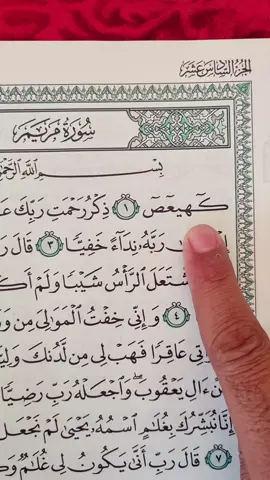 الجزء السادس عشر
سُورَةُ مَرْيَمَ
بِسْمِ ٱللَّهِ
كٓهيعٓصٓ ١ ذِكْرُ رَحْمَتِ رَبِّكَ
رَبَّهُۥ نِدَآءً خَفِيًّا ٣ قَالَ
ٱلرَّأْسُ شَيْبًا وَلَمْ
٤ وَإِنِّى خِفْتُ ٱلْمَوَٰلِىَ مِن
عَاقِرًا فَهَبْ لِى مِن لَّدُنكَ
مِنْ ءَالِ يَعْقُوبَ ۖ وَٱجْعَلْهُ رَبِّ رَضِيًّا
إِنَّا نُبَشِّرُكَ بِغُلَٰمٍ ٱسْمُهُۥ يَحْيَىٰ لَمْ نَجْعَل
٧ قَالَ رَبِّ أَنَّىٰ يَكُونُ لِى غُلَٰمٌ